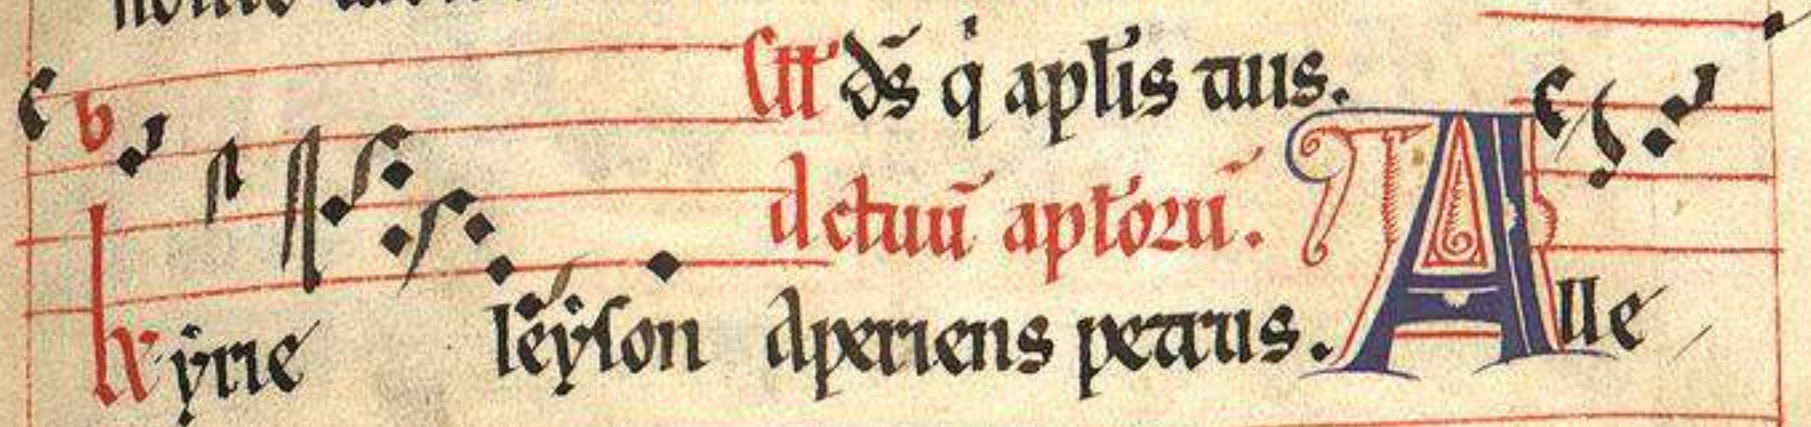 Ctt d̄s q̇ apl̄is tuis.
d ctuū apl̄oꝛū.
kẏrie lēẏson Aperiens petrus. Alle